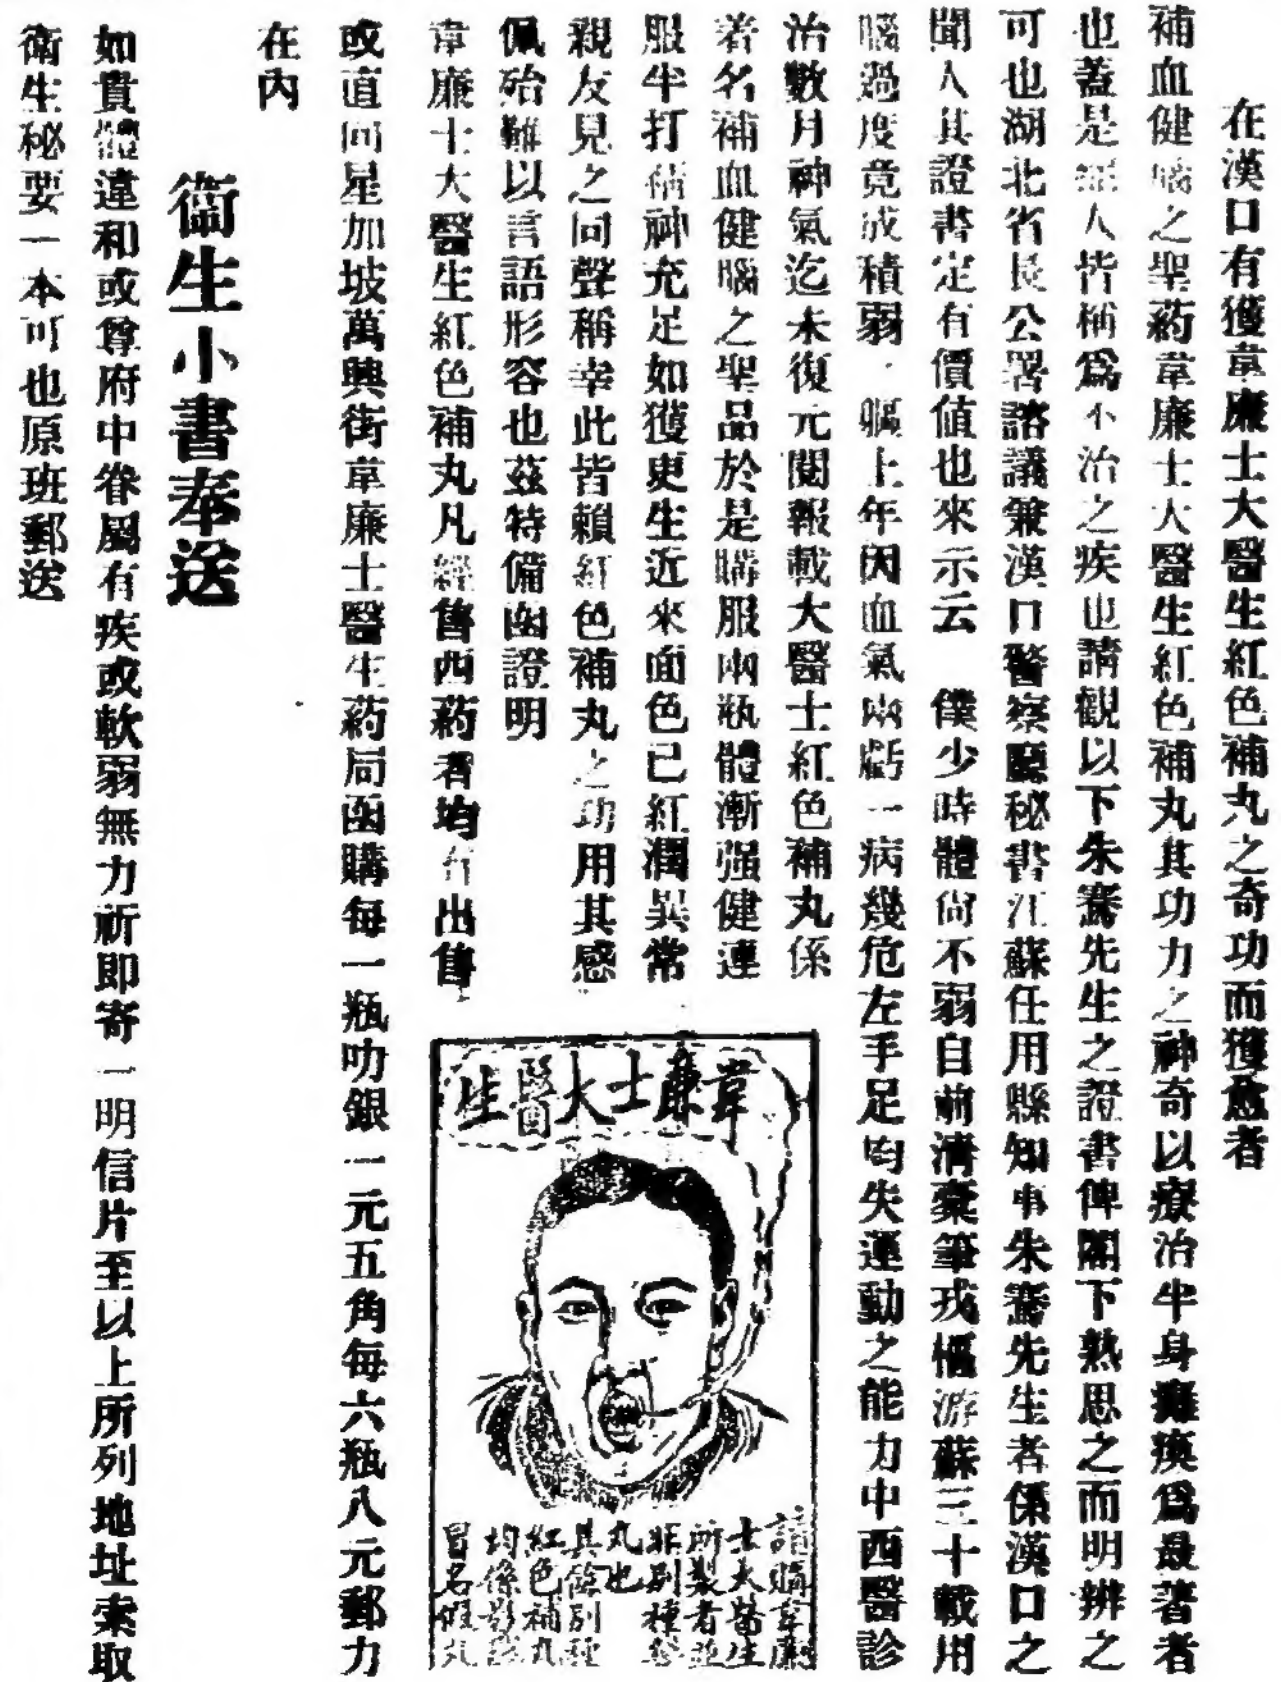 在漢口有獲韋廉士大醫生紅色補丸之奇功而獲愈者
補血健腦之聖药韋廉士大醫生紅色補丸其功力之神奇以療治半身癱瘓爲最著者
也蓋是症人皆稱爲不治之疾也請觀以下朱騫先生之證書俾閣下熟思之而明辨之
可也湖北省長公署諮議兼漢口警察廳秘書江蘇任用縣知事朱騫先生者係漢口之
聞人其證書定有價值也來示云 僕少時體尙不弱自前清棄筆戎樞游蘇三十載用
腦過度竟成積弱 軀上年因血氣兩虧一病幾危左手足均失運動之能力中西醫診
治數月神氣迄未復元閱報載大醫士紅色補丸係
著名補血健腦之聖品於是購服兩瓶體漸强健連
服半打精神充足如獲更生近來面色已紅潤異常
親友見之同聲稱幸此皆賴紅色補丸之功用其感
佩殆難以言語形容也茲特備函證明
韋廉士大醫生紅色補丸凡經售西药者均有出售
或直向星加坡萬興街韋廉士醫生药局函購每一瓶叻銀一元五角每六瓶八元郵力
在內
衞生小書奉送
如貴體違和或尊府中眷屬有疾或軟弱無力祈即寄一明信片至以上所列地址索取
衛生秘要一本可也原班郵送
韋廉士大醫生
請購韋廉
士大醫生
所製者並
非別種紅
丸也
其餘別種
紅色補丸
均係影
冒名假丸